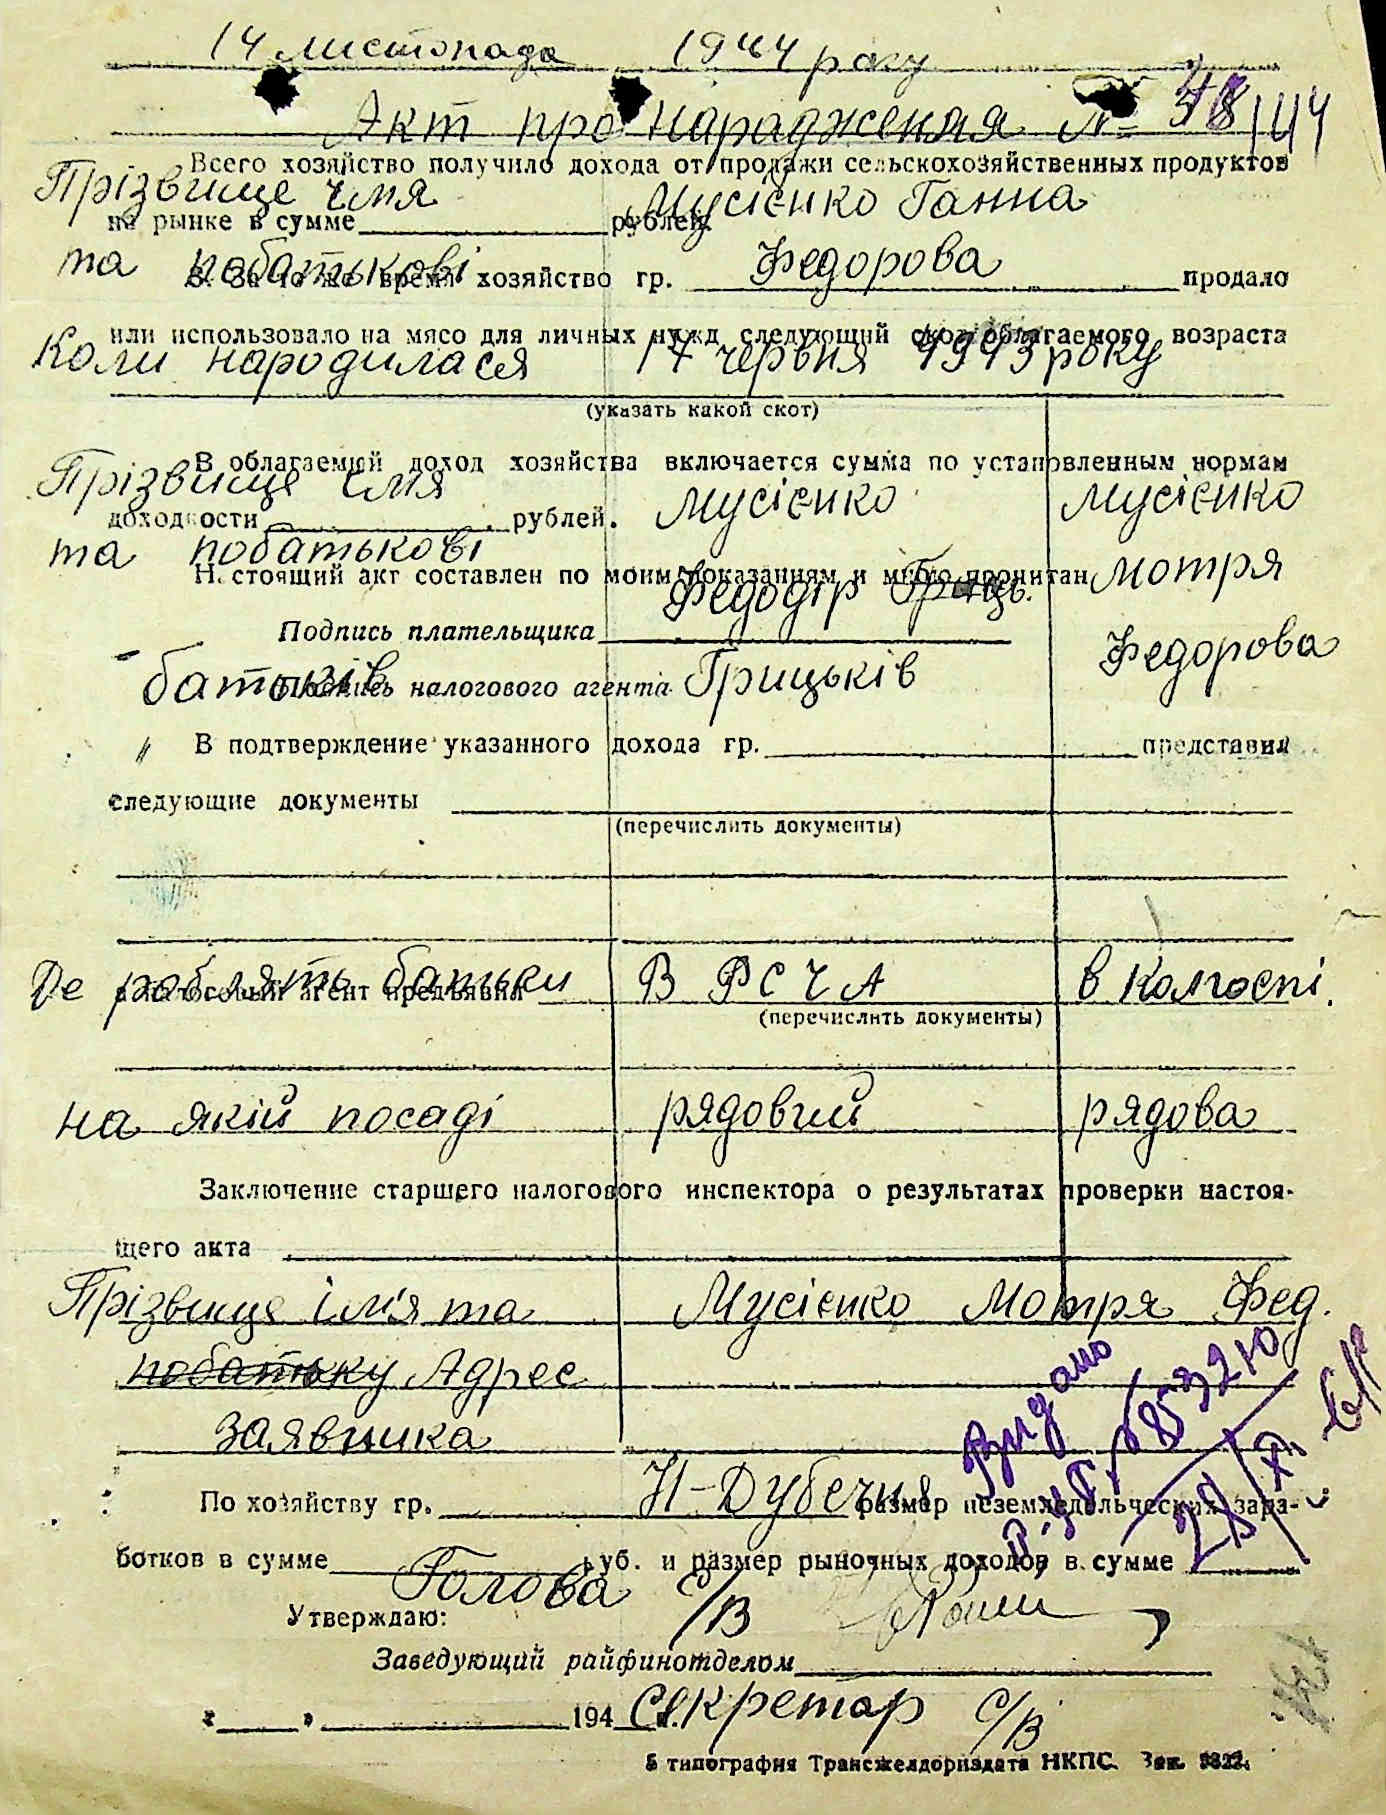 14 листопада 1944 року
Акт про нарадження № 38/44
Всего хозяйство получило дохода от продажи сельскохозяйственных продуктов
Прізвище імя Мусієнко Ганна
на рынке в сумме рублей.
та побатькові Федорова
В. За то же время хозяйство гр. продало
или использовало на мясо для личных нужд следующий скот облагаемого возраста
Коли народилася 17 червня 1943 року
(указать какой скот)
В облагаемый доход хозяйства включается сумма по установленным нормам
Прізвище імя Мусієнко Мусієнко
доходности рублей.
та побатькові Федодір Гриць. Мотря
Настоящий акт составлен по моим показаниям и мною прочитан
Подпись плательщика Федорова
батьків Грицьків
Подпись налогового агента
" В подтверждение указанного дохода гр. представил
следующие документы
(перечислить документы)
Де роблять батьки В РСЧА в колгоспі.
а налоговый агент предъявил
(перечислить документы)
на якій посаді рядовий рядова
Заключение старшего налогового инспектора о результатах проверки настоя-
щего акта
Прізвище імя та Мусієнко Мотря Фед.
побатьку Адрес
заявника
Видано
Н-Дубечня
По хозяйству гр. размер неземледельческих зара-
ботков в сумме руб. и размер рыночных доходов в сумме
Голова с/в
Утверждаю:
Заведующий райфинотделом
" " 194 г.
Секретар с/в
5 типография Трансжелдориздата НКПС. Зак.